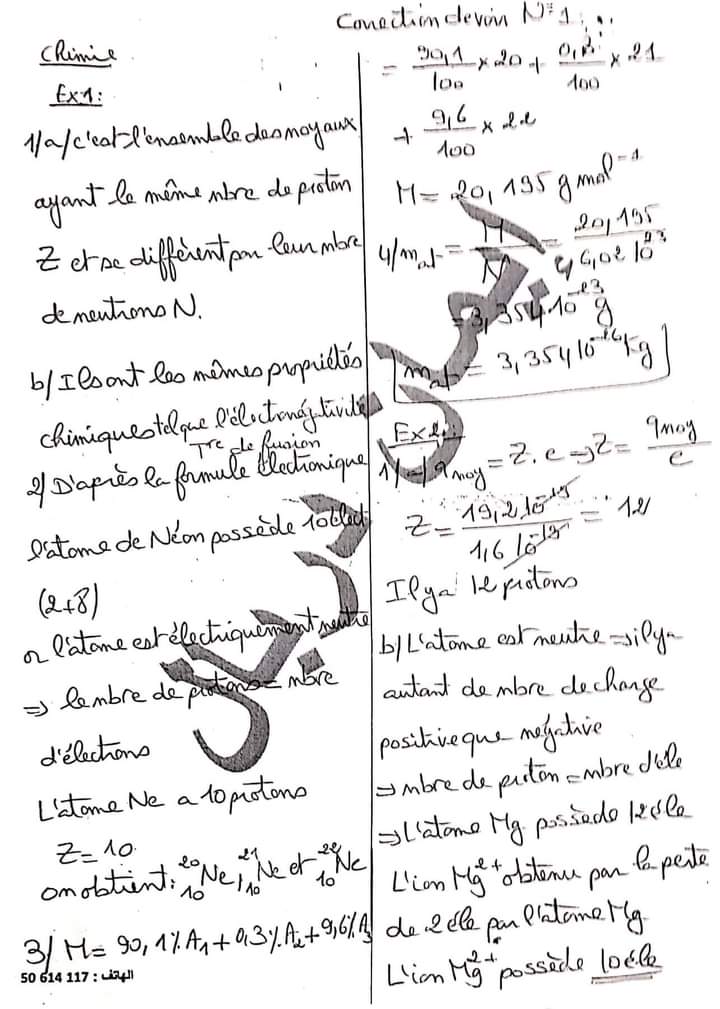 Correction devoir N°1
Chimie
Ex1:
1/a/c'est l'ensemble des noyaux
ayant le même nbre de proton
Z et se diffèrent par leur nbre
de neutrons N.
b/Ils ont les mêmes propriétés
chimiques tel que l'électronégativité
Tre de fusion
2/ D'après la formule électronique
l'atome de Néon possède 10élect
(2+8)
or l'atome est électriquement neutre
=> le nbre de protons = nbre
d'électrons
L'atome Ne a 10 protons
Z=10
on obtient: ²⁰₁₀Ne, ²¹₁₀Ne et ²²₁₀Ne
3/ M= 90,1%A₁+0,3%A₂+9,6%A₃
الهاتف : 117 614 50
= 90,1/100 × 20 + 0,3/100 × 21
+ 9,6/100 × 22
M= 20,195 g mol⁻¹
4/mat = M/N = 20,195/6,02 10²³
=3,354.10⁻²³ g
mat = 3,354 10⁻²⁶ kg
Ex2:
1/a/q noy = Z.e => Z = q noy/e
Z= 19,2 10⁻¹⁹/1,6 10⁻¹⁹ = 12
Il ya 12 protons
b/L'atome est neutre => il ya
autant de nbre de charge
positive que négative
=> nbre de proton = nbre d'éle
=> L'atome Mg possède 12 éle
L'ion Mg²⁺ obtenu par la perte
de 2 éle par l'atome Mg
L'ion Mg²⁺ possède 10 éle